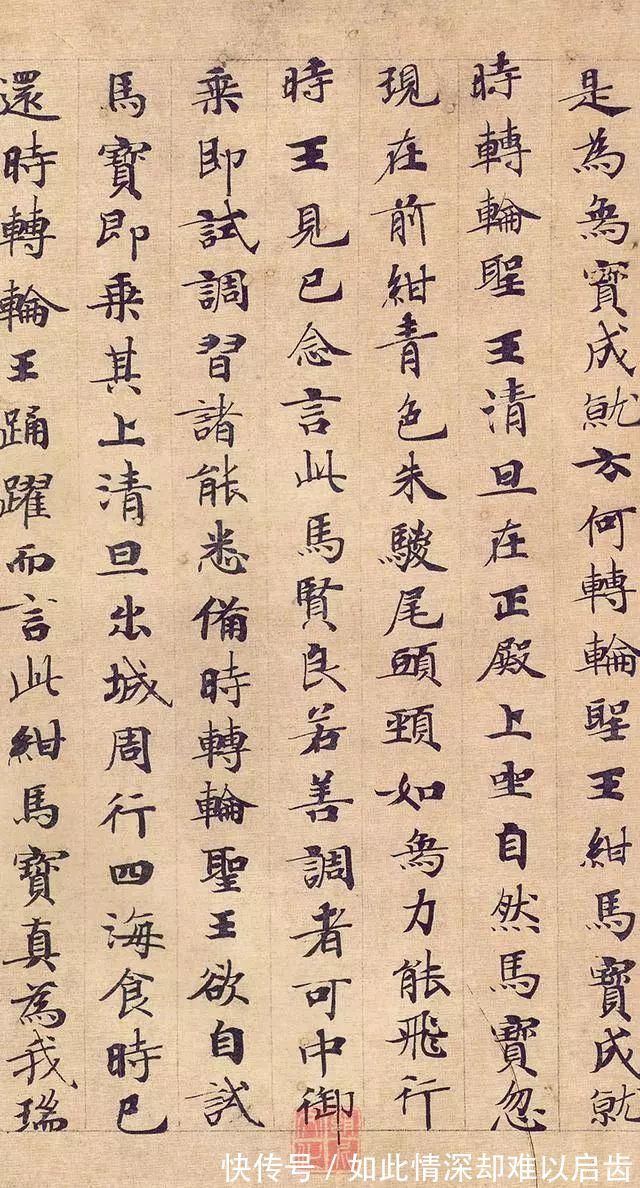 是為象寶成就云何轉輪聖王紺馬寶成就
時轉輪聖王清旦在正殿上坐自然馬寶忽
現在前紺青色朱騣尾頭頸如象力能飛行
時王見已念言此馬賢良若善調者可中御
乘即試調習諸能悉備時轉輪聖王欲自試
馬寶即乘其上清旦出城周行四海食時已
還時轉輪王踊躍而言此紺馬寶真為我瑞
快传号 / 如此情深却难以启齿